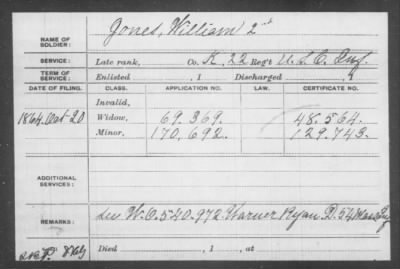 Jones, William 2nd
NAME OF SOLDIER:
SERVICE: Late rank, Co. K, 22 Reg't U.S.C. Inf.
TERM OF SERVICE: Enlisted , 1 Discharged , 1
DATE OF FILING. CLASS. APPLICATION NO. LAW. CERTIFICATE NO.
Invalid,
1864. Oct. 20 Widow, 69.369. 48.564.
Minor, 170,692. 129.743.
ADDITIONAL SERVICES:
REMARKS: See W.O. 540.972 Warner Ryan D. 54 Mass Inf
Died , 1 , at